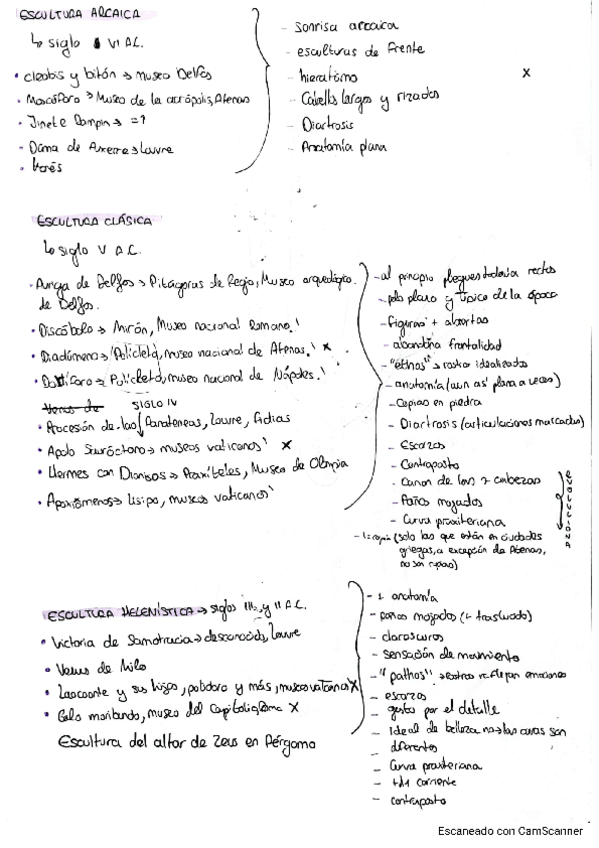 ESCULTURA ARCAICA
↳ siglo VI A.C.
• cleobis y bitón → museo Delfos
• Moscóforo → Museo de la acrópolis, Atenas
• Jinete Rampin → = ?
- Dama de Auxerre → Louvre
• Korés
- sonrisa arcaica
- esculturas de frente
- hieratismo
x
- Cabellos largos y rizados
- Diartrosis
- Anatomía plana
ESCULTURA CLÁSICA
↳ siglo V A.C.
• Auriga de Delfos → Pitágoras de Regio, Museo arqueológico
de Delfos.
• Discóbolo → Mirón, Museo nacional Romano.'
• Diadúmeno → Policleto, museo nacional de Atenas.' x
• Doríforo → Policleto, museo nacional de Nápoles.'
Venus de
SIGLO IV
• Procesión de las Panateneas, Louvre, Fidias
• Apolo Sauróctono → museos vaticanos' x
• Hermes con Dionisos → Praxiteles, Museo de Olimpia
• Apoxiómenos → Lisipo, museos vaticanos'
- al principio pliegues todavía rectos
- pelo plano y típico de la época
- figuras + abiertas
- abandona frontalidad
- "ethos" → rostro idealizados
- anatomía (aun así plana a veces)
- Copias en piedra
- Diartrosis (articulaciones marcadas)
- Escorzos
- Contraposto
- Canon de las 7 cabezas
- Paños mojados
- Curva praxiteliana
(solo las que están en ciudades
griegas, a excepción de Atenas,
no son copias)
ESCULTURA HELENÍSTICA → siglos III y II A.C.
• Victoria de Samotracia → desconocido, Louvre
• Venus de Milo
• Laocoonte y sus hijos, polidoro y más, museos vaticanos x
• Galo moribundo, museo del Capitolio, Roma x
Escultura del altar de Zeus en Pérgamo
- + anatomía
- paños mojados
- claroscuros
- sensación de movimiento
- "pathos" → rostros reflejan emociones
- escorzos
- gusto por el detalle
- Ideal de belleza no → las caras son
diferentes
- Curva praxiteliana
- corriente
- contraposto
Escaneado con CamScanner